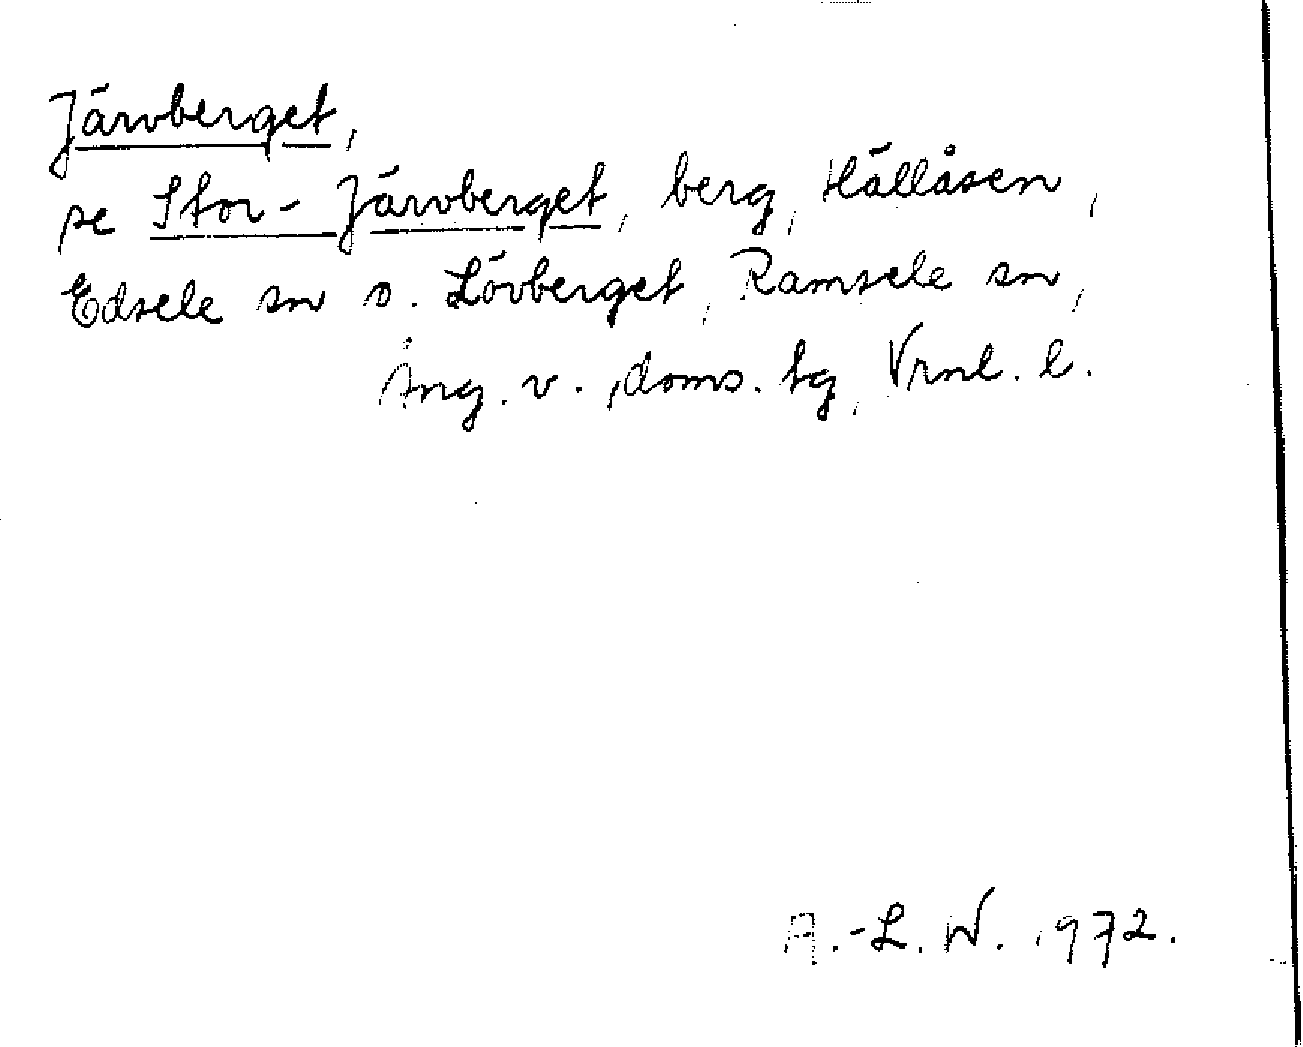 Järvberget,
se Stor-Järvberget, berg, Hällåsen,
Edsele sn o. Lövberget, Ramsele sn,
Ång. v. doms. tg, Vrnl. l.
A.-L. W. 1972.